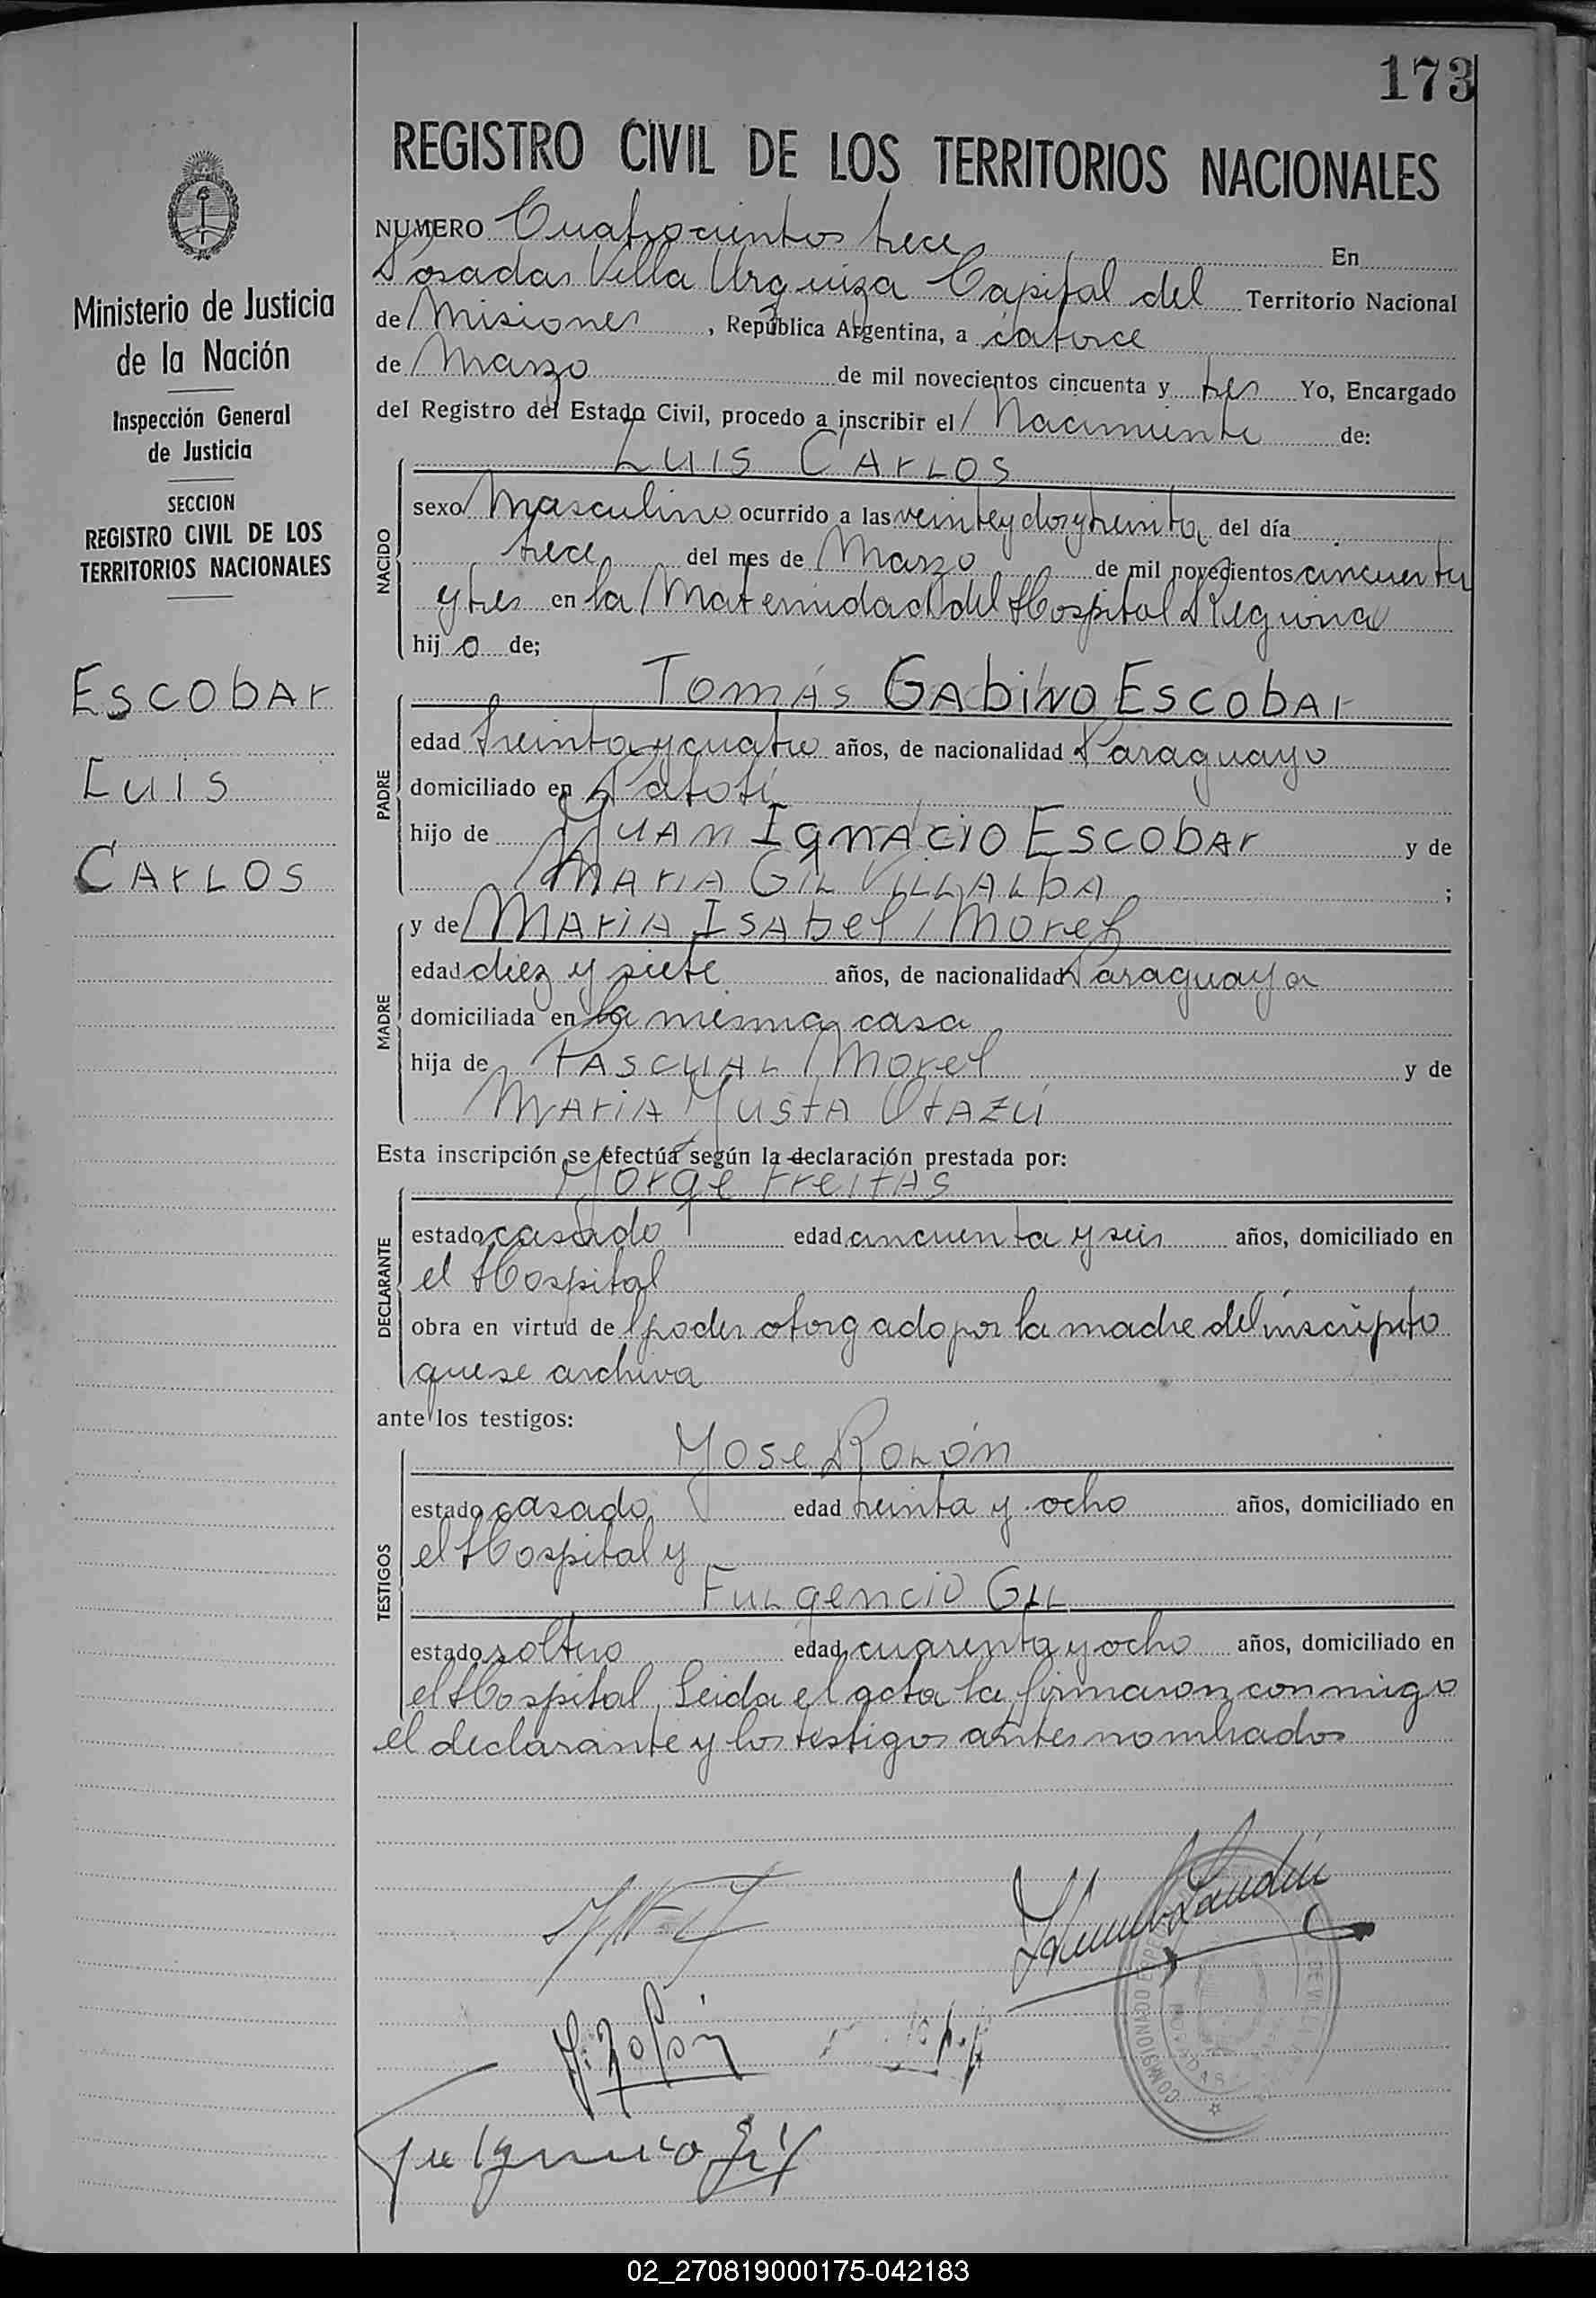 173
REGISTRO CIVIL DE LOS TERRITORIOS NACIONALES
Ministerio de Justicia
de la Nación
Inspección General
de Justicia
SECCION
REGISTRO CIVIL DE LOS
TERRITORIOS NACIONALES
Escobar
Luis
Carlos
NUMERO Cuatrocientos trece En
Posadas Villa Urquiza Capital del Territorio Nacional
de Misiones, República Argentina, a catorce
de Marzo de mil novecientos cincuenta y tres Yo, Encargado
del Registro del Estado Civil, procedo a inscribir el Nacimiento de:
NACIDO
Luis Carlos
sexo Masculino ocurrido a las veinte y dos y treinta del día
trece del mes de Marzo de mil novecientos cincuenta
y tres en la Maternidad del Hospital Regional
hij o de;
PADRE
Tomás Gabino Escobar
edad treinta y cuatro años, de nacionalidad Paraguayo
domiciliado en
hijo de Juan Ignacio Escobar y de
Maria Gil Villalba ;
MADRE
y de Maria Isabel Morel
edad diez y siete años, de nacionalidad Paraguaya
domiciliada en la misma casa
hija de Pascual Morel y de
Maria Justa Otazú
Esta inscripción se efectúa según la declaración prestada por:
DECLARANTE
Jorge Freitas
estado casado edad cincuenta y seis años, domiciliado en
el Hospital
obra en virtud de l poder otorgado por la madre del inscripto
que se archiva
ante los testigos:
TESTIGOS
Jose Rolón
estado casado edad treinta y ocho años, domiciliado en
el Hospital y
Fulgencio Gil
estado soltero edad cuarenta y ocho años, domiciliado en
el Hospital, Leida el acta la firmaron conmigo
el declarante y los testigos antes nombrados
J. Rolón
Fulgencio Gil
COMISIONADO
02_270819000175-042183